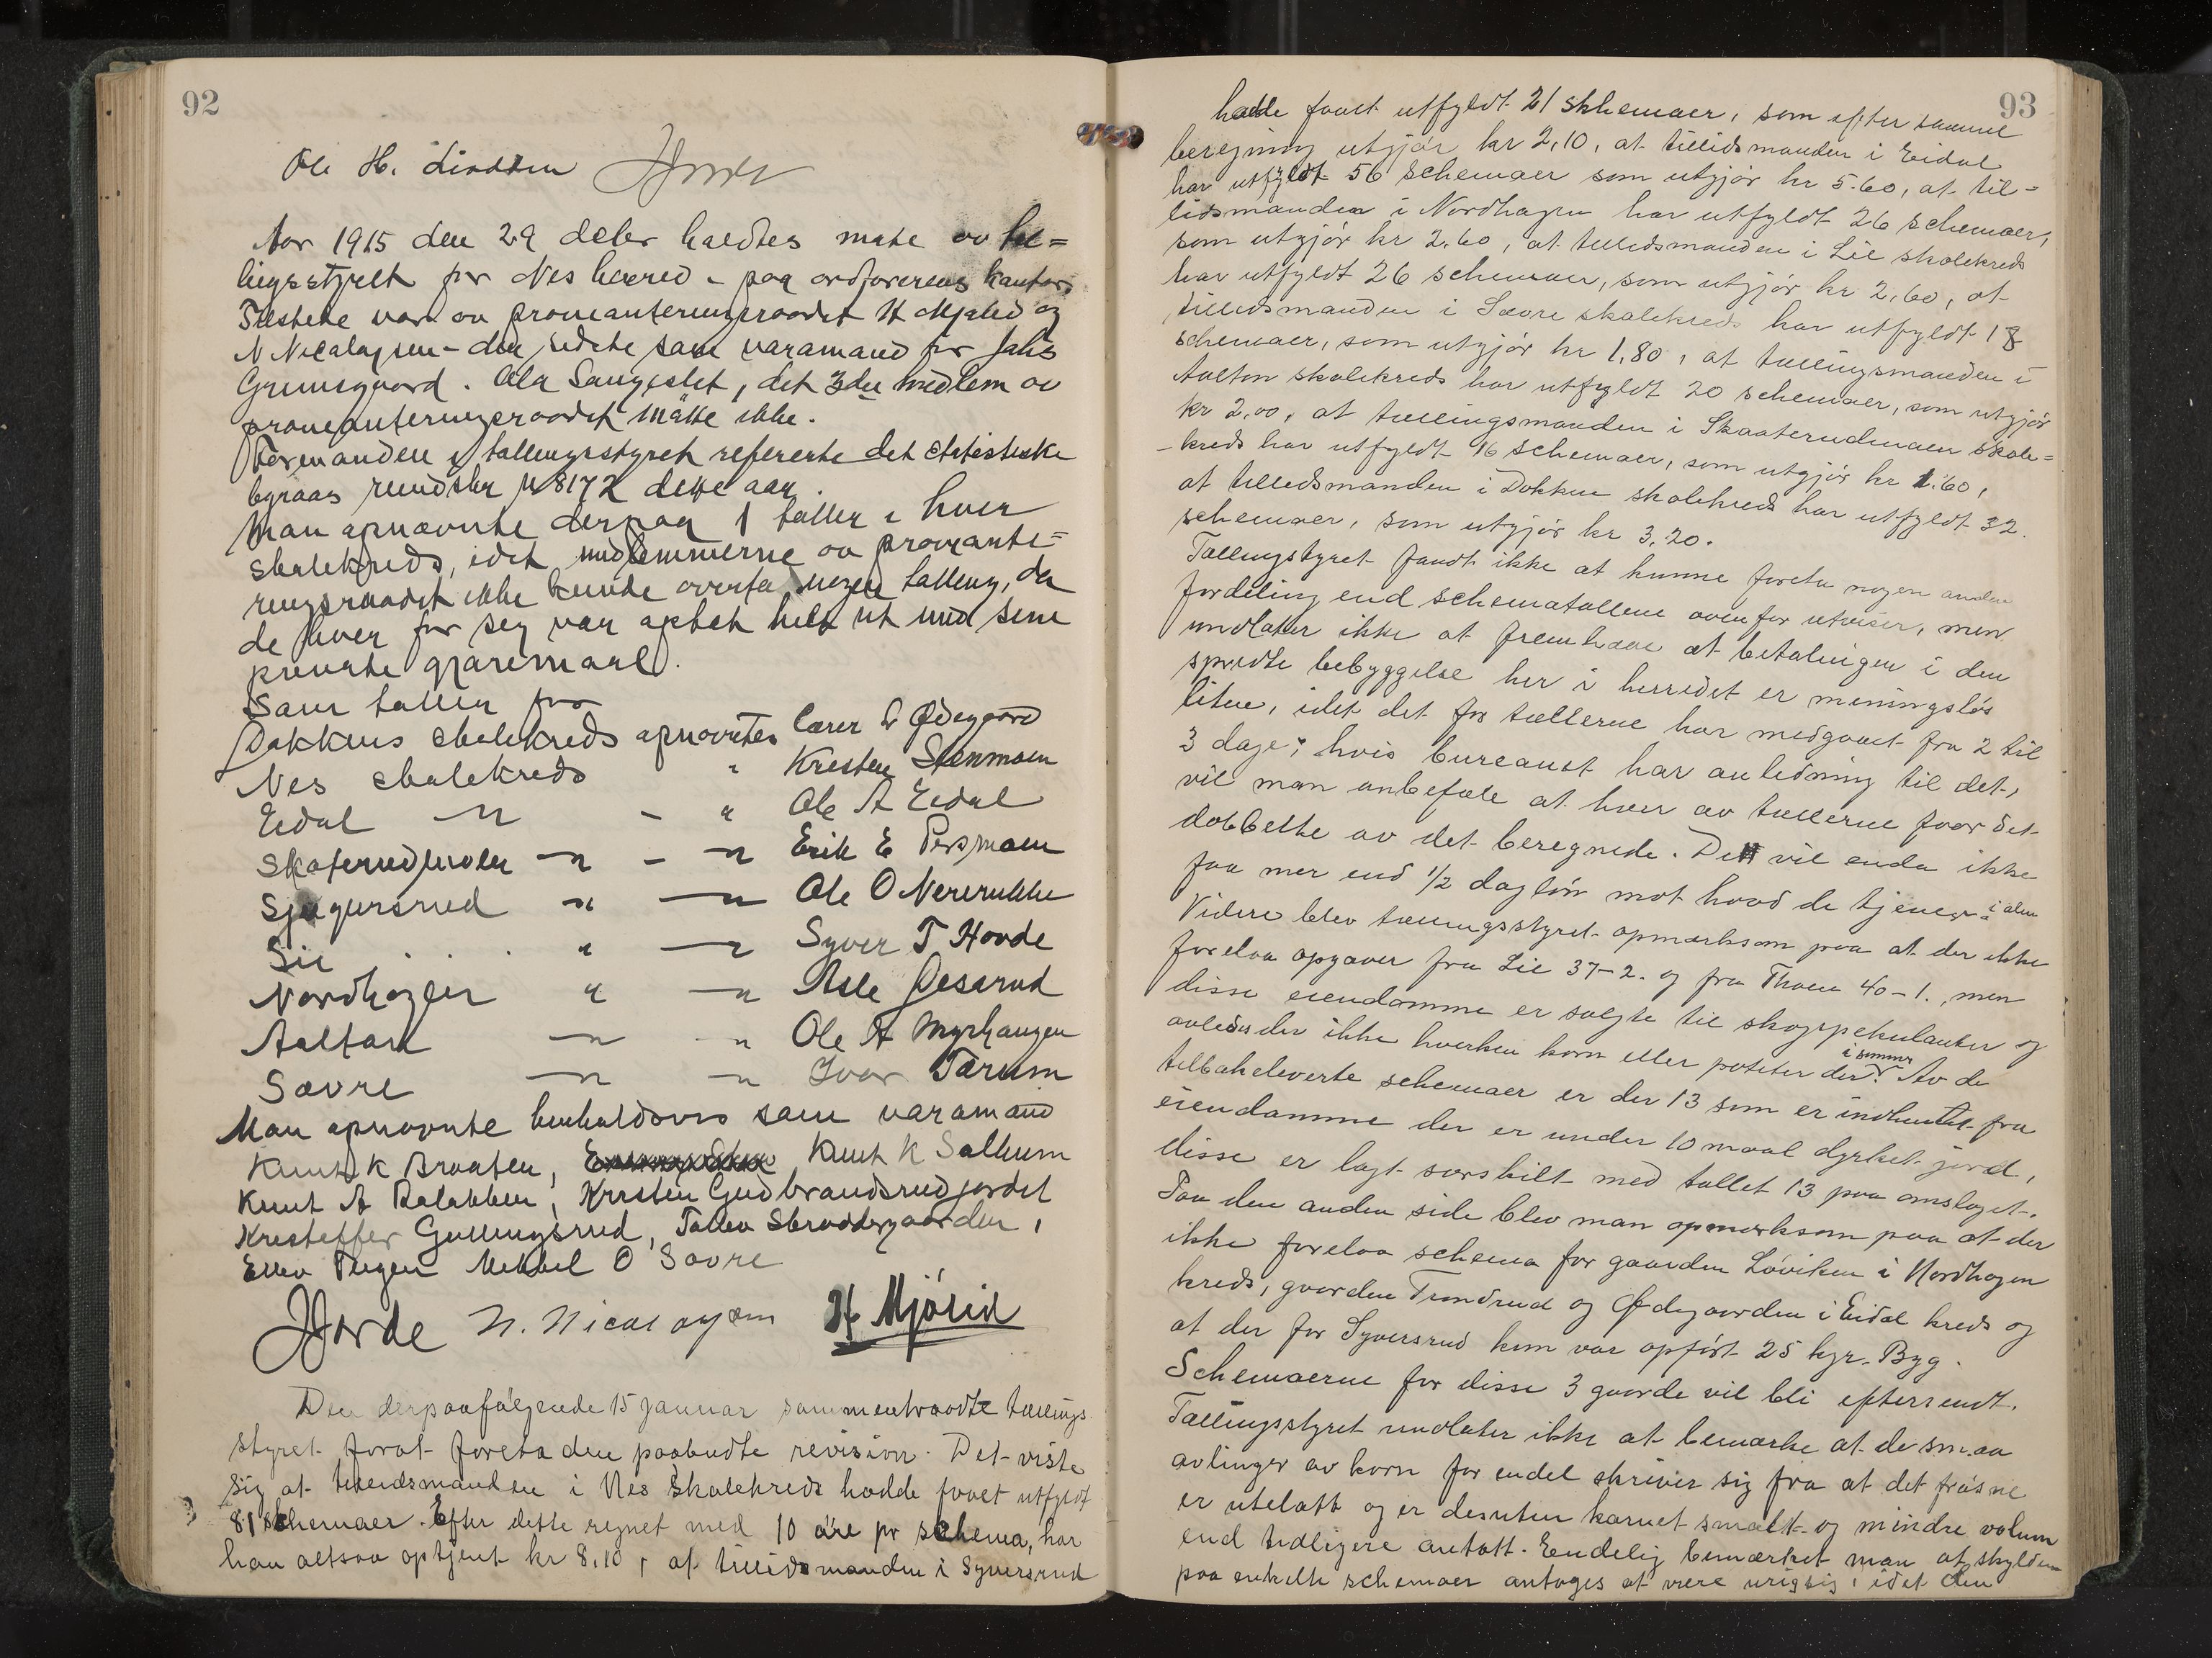 92
Ole H. Lindsten
Aar 1915 den 29 deler holdtes møte av tæl=
lingsstyret for Nes herred - paa ordførerens kontor.
Tilstede var av provianteringsraadet H Mjølid og
N Nicolaysen - den sidste som varamand for Jahs
Grimsgaard. Ola Saugeslet, det 3die medlem av
provianteringsraadet møtte ikke.
Formanden i tællingsstyret refererte det statistiske
byraas rundskr N 8172 dette aar.
Man opnævnte derpaa 1 tæller i hver
skolekreds, idet medlemmerne av provante=
ringsraadet ikke kunde overta nogen tælling, da
de hver for seg var optat helt ut med sine
private gjøremaal.
Som tæller for
Dokkens skolekreds opnævntes lærer Ødegaard
Nes skolekreds " Kristen Stenmoen
Eidal — " - " Ole A Eidal
Skaterudmoen — " - — " Erik E Persmoen
Sjugursrud " — " Ole O Nererukke
Lie . . . " — " Syver T Hovde
Nordhagen " — " Asle Jesarud
Aalton — " " Ole A Myrhaugen
Sævre — " — " Ivar Tærum
Man opnævnte henholdsvis som varamand
Knut K Braaten, Knut K Salhum
Knut A Dalebben, Kristen Gudbrandsrudjordet
Kristoffer Gullingsrud, Tollev Skroddergaarden,
Ellev Teigen Mekkel O Sævre
JHorde N. Nicolaysen H Mjølid
Den derpaafølgende 15 januar sammentraadte tællings
styret forat foreta den paabudte revision. Det viste
sig at tillidsmanden i Nes skolekreds hadde faaet utfyldt
81 schemaer. Efter dette regnet med 10 øre pr schema, har
han altsaa optjent kr 8,10, at tillidsmanden i Syversrud
93
hadde faaet utfyldt 21 skhemaer, som efter samme
beregning utgjør kr 2,10, at tillidsmanden i Eidal
har utfyldt 56 schemaer som utgjør kr 5.60, at til=
lidsmanden i Nordhagen har utfyldt 26 schemaer,
som utgjør kr 2.60, at tillidsmanden i Lie skolekreds
har utfyldt 26 schemaer, som utgjør kr 2,60, at
tillidsmanden i Sævre skolekreds har utfyldt 18
schemaer, som utgjør kr 1,80, at tællingsmanden i
Aalton skolekreds har utfyldt 20 schemaer, som utgjør
kr 2,00, at tællingsmanden i Skaaterudmoen skole=
-kreds har utfyldt 16 schemaer, som utgjør kr 1.60,
at tillidsmanden i Dokken skolekreds har utfyldt 32
schemaer, som utgjør kr 3,20.
Tællingstyret fandt ikke at kunne foreta nogen anden
fordeling end schematallene ovenfor utviser, men
undlater ikke at fremhæve at betalingen i den
spredte bebyggelse her i herredet er meningsløs
liten, idet det for tællerne har medgaaet fra 2 til
3 dage; hvis bureauet har anledning til det,
vil man anbefale at hver av tællerne faar det
dobbelte av det beregnede. Det vil enda ikke
faa mer end 1/2 dagløn mot hvad de tjener i
Videre blev tællingsstyret opmærksom paa at der ikke
forelaa opgaver fra Lie 37-2. og fra Thoen 40-1., men
disse eiendomme er solgte til skogspekulanter og
avledes der ikke hverken korn eller poteter der i sommer. Av de
tilbakeleverte schemaer er der 13 som er indhentet fra
eiendomme der er under 10 maal dyrket jord,
disse er lagt særskilt med tallet 13 paa omslaget.
Paa den anden side blev man opmerksom paa at der
ikke forelaa schema for gaarden Løviken i Nordhagen
kreds, gaarden Trondrud og Ødegaarden i Eidal kreds og
at der for Syversrud kun var opført 25 kgr. Byg.
Schemaerne for disse 3 gaarde vil bli eftersendt.
Tællingsstyret undlater ikke at bemærke at de smaa
avlinger av korn for endel skriver sig fra at det frosne
er utelatt og er desuten kornet smaat og mindre volum
end tidligere antatt. Endelig bemærket man at skylden
paa enkelte schemaer antages at være urigtig, idet den